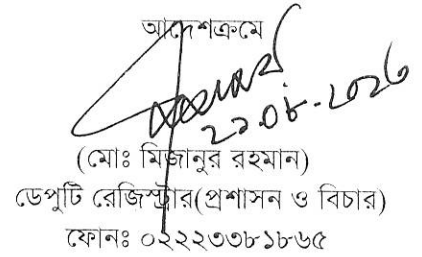 আদেশক্রমে
(মোঃ মিজানুর রহমান)
ডেপুটি রেজিস্ট্রার(প্রশাসন ও বিচার)
ফোনঃ ০২২২৩৩৮১৮৬৫